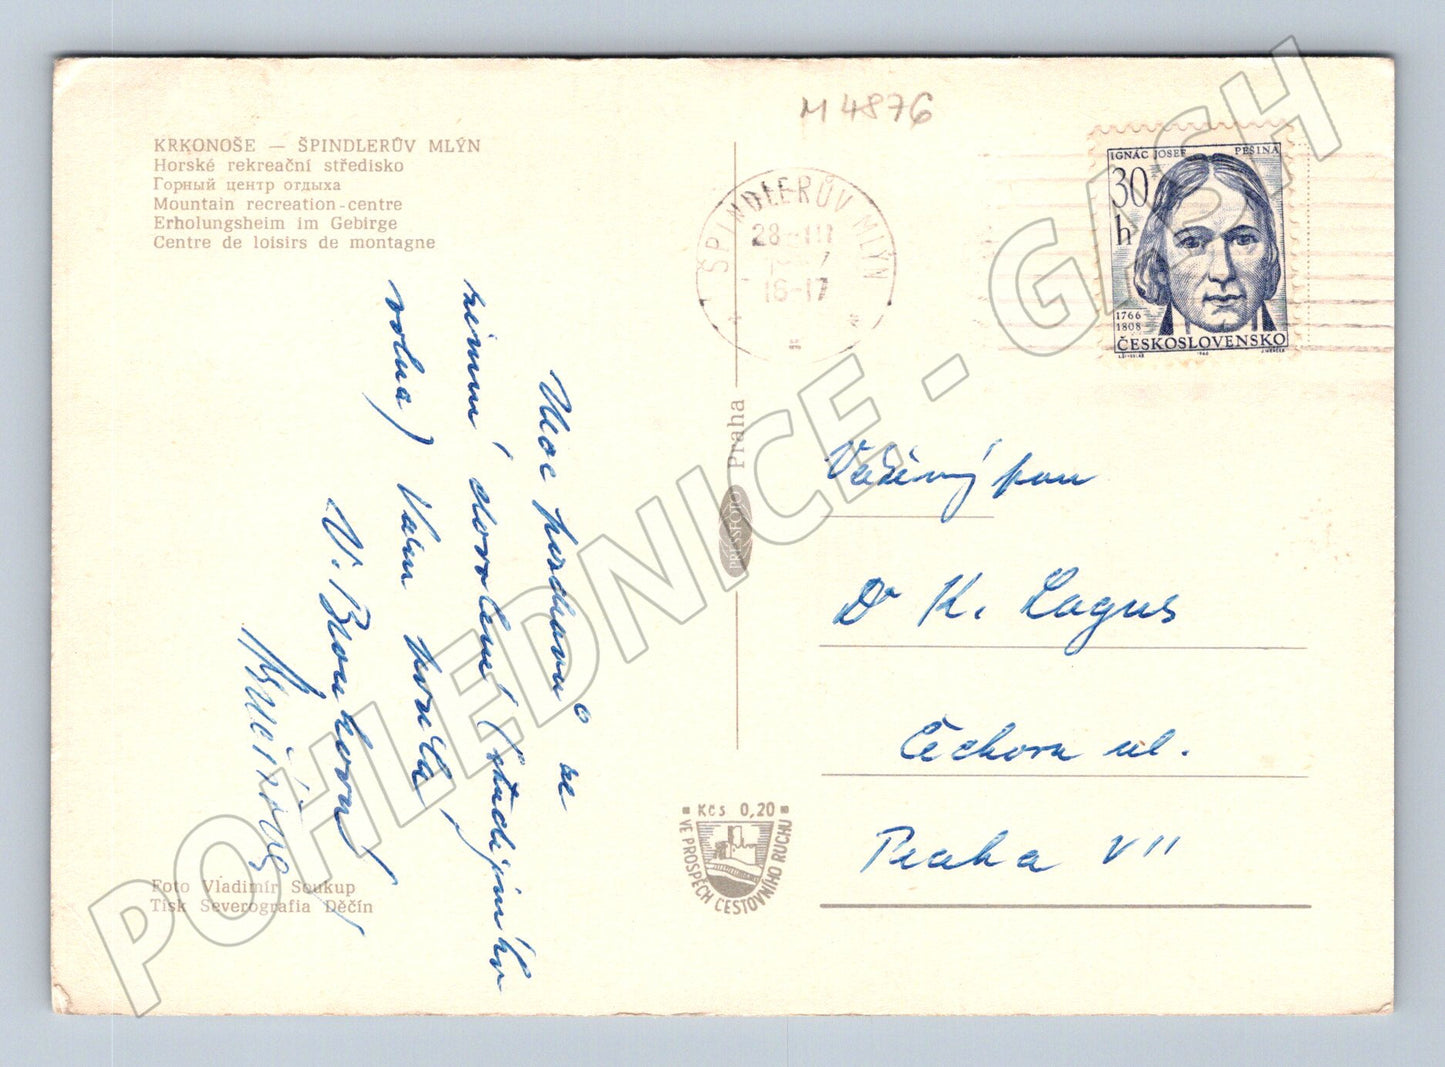 M 4876
KRKONOŠE — ŠPINDLERŮV MLÝN
Horské rekreační středisko
Горный центр отдыха
Mountain recreation-centre
Erholungsheim im Gebirge
Centre de loisirs de montagne
ŠPINDLERŮV MLÝN
28-III
16-17
IGNÁC JOSEF PEŠINA
30 h
1766
1808
ČESKOSLOVENSKO
Moc pozdravů ze
zimní dovolené (studijního
volna) Vám posílá
V.
Praha
PRESSFOTO
Vážený pan
Dr K. Lagus
Čechova ul.
Praha VII
Kčs 0,20
VE PROSPĚCH CESTOVNÍHO RUCHU
Foto Vladimír Soukup
Tisk Severografia Děčín
POHLEDNICE - GASH